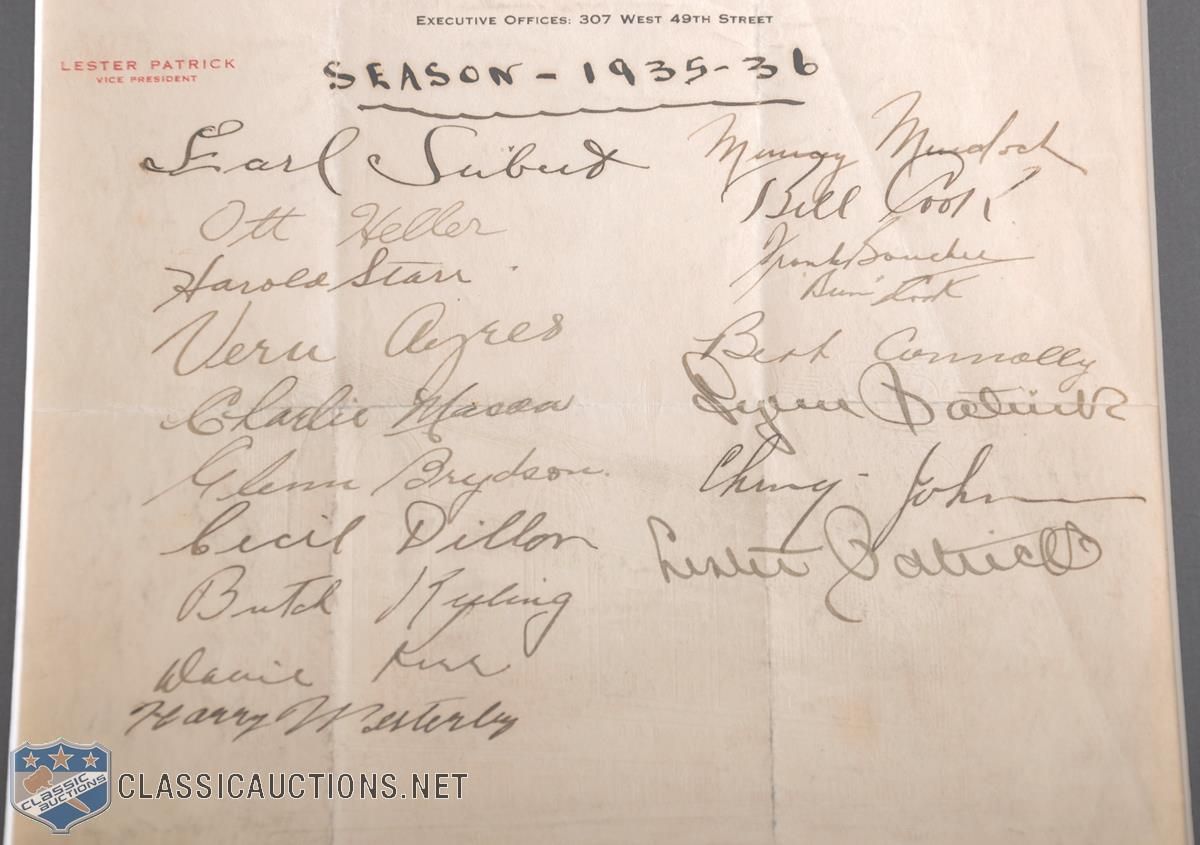 EXECUTIVE OFFICES: 307 WEST 49TH STREET
LESTER PATRICK
VICE PRESIDENT
SEASON - 1935-36
Earl Seibert
Ott Heller
Harold Starr
Vern Ayres
Charlie Mason
Glenn Brydson
Cecil Dillon
Butch Keeling
Davie Kerr
Harry Westerby
Murray Murdoch
Bill Cook
Frank Boucher
"Bun" Cook
Bert Connolly
Lynn Patrick
Ching Johnson
Lester Patrick
CLASSIC AUCTIONS
CLASSICAUCTIONS.NET